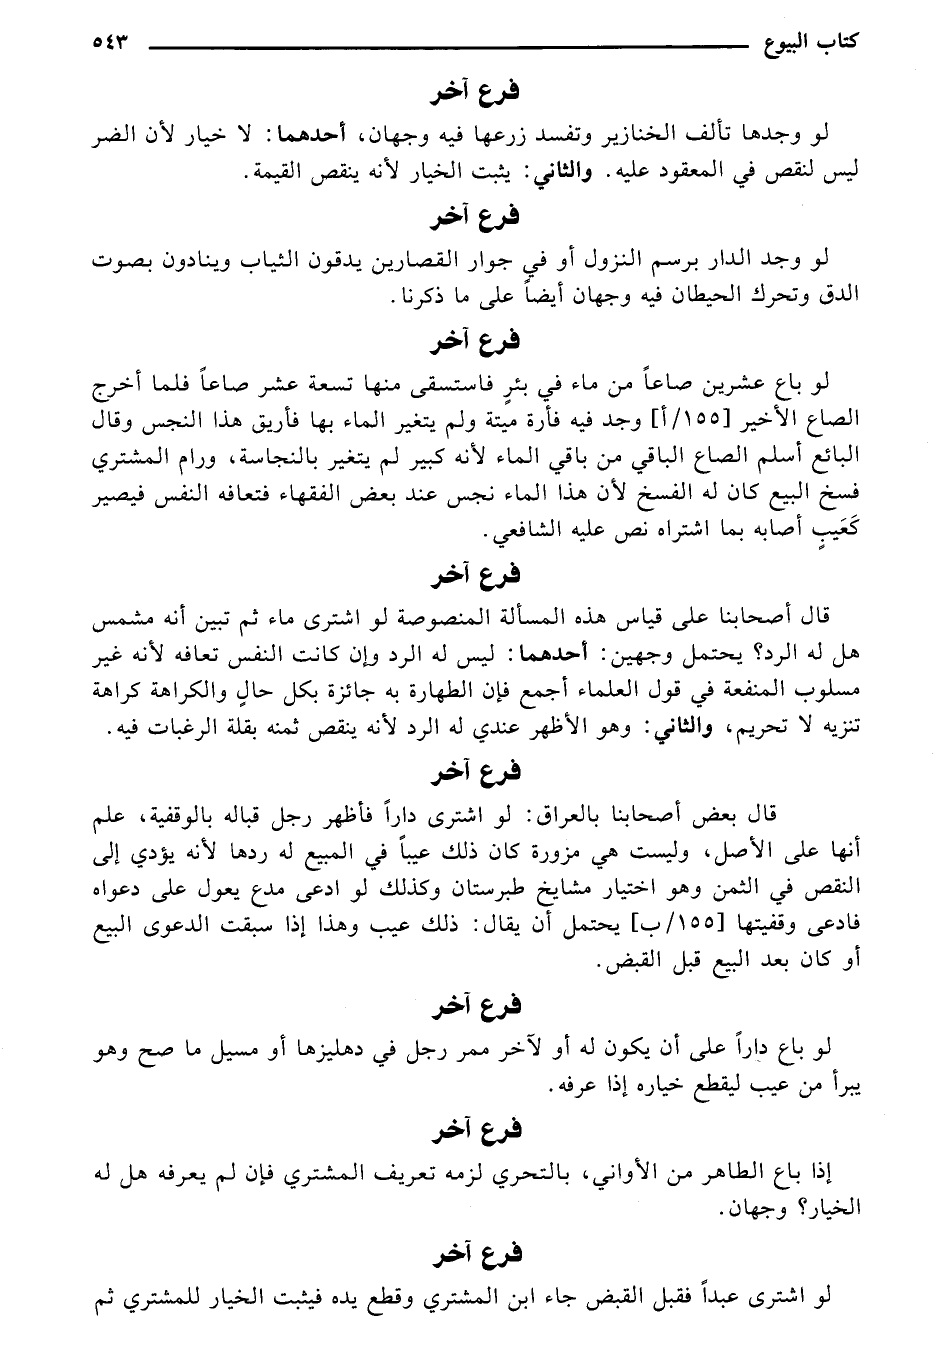 كتاب البيوع ٥٤٣
فرع آخر
لو وجدها تألف الخنازير وتفسد زرعها فيه وجهان، أحدهما: لا خيار لأن الضر
ليس لنقص في المعقود عليه. والثاني: يثبت الخيار لأنه ينقص القيمة.
فرع آخر
لو وجد الدار برسم النزول أو في جوار القصارين يدقون الثياب وينادون بصوت
الدق وتحرك الحيطان فيه وجهان أيضاً على ما ذكرنا.
فرع آخر
لو باع عشرين صاعاً من ماء في بئرٍ فاستسقى منها تسعة عشر صاعاً فلما أخرج
الصاع الأخير [١٥٥/أ] وجد فيه فأرة ميتة ولم يتغير الماء بها فأريق هذا النجس وقال
البائع أسلم الصاع الباقي من باقي الماء لأنه كبير لم يتغير بالنجاسة، ورام المشتري
فسخ البيع كان له الفسخ لأن هذا الماء نجس عند بعض الفقهاء فتعافه النفس فيصير
كَعَيبٍ أصابه بما اشتراه نص عليه الشافعي.
فرع آخر
قال أصحابنا على قياس هذه المسألة المنصوصة لو اشترى ماء ثم تبين أنه مشمس
هل له الرد؟ يحتمل وجهين: أحدهما: ليس له الرد وإن كانت النفس تعافه لأنه غير
مسلوب المنفعة في قول العلماء أجمع فإن الطهارة به جائزة بكل حالٍ والكراهة كراهة
تنزيه لا تحريم، والثاني: وهو الأظهر عندي له الرد لأنه ينقص ثمنه بقلة الرغبات فيه.
فرع آخر
قال بعض أصحابنا بالعراق: لو اشترى داراً فأظهر رجل قباله بالوقفية، علم
أنها على الأصل، وليست هي مزورة كان ذلك عيباً في المبيع له ردها لأنه يؤدي إلى
النقص في الثمن وهو اختيار مشايخ طبرستان وكذلك لو ادعى مدع يعول على دعواه
فادعى وقفيتها [١٥٥/ب] يحتمل أن يقال: ذلك عيب وهذا إذا سبقت الدعوى البيع
أو كان بعد البيع قبل القبض.
فرع آخر
لو باع داراً على أن يكون له أو لآخر ممر رجل في دهليزها أو مسيل ما صح وهو
يبرأ من عيب ليقطع خياره إذا عرفه.
فرع آخر
إذا باع الطاهر من الأواني، بالتحري لزمه تعريف المشتري فإن لم يعرفه هل له
الخيار؟ وجهان.
فرع آخر
لو اشترى عبداً فقبل القبض جاء ابن المشتري وقطع يده فيثبت الخيار للمشتري ثم